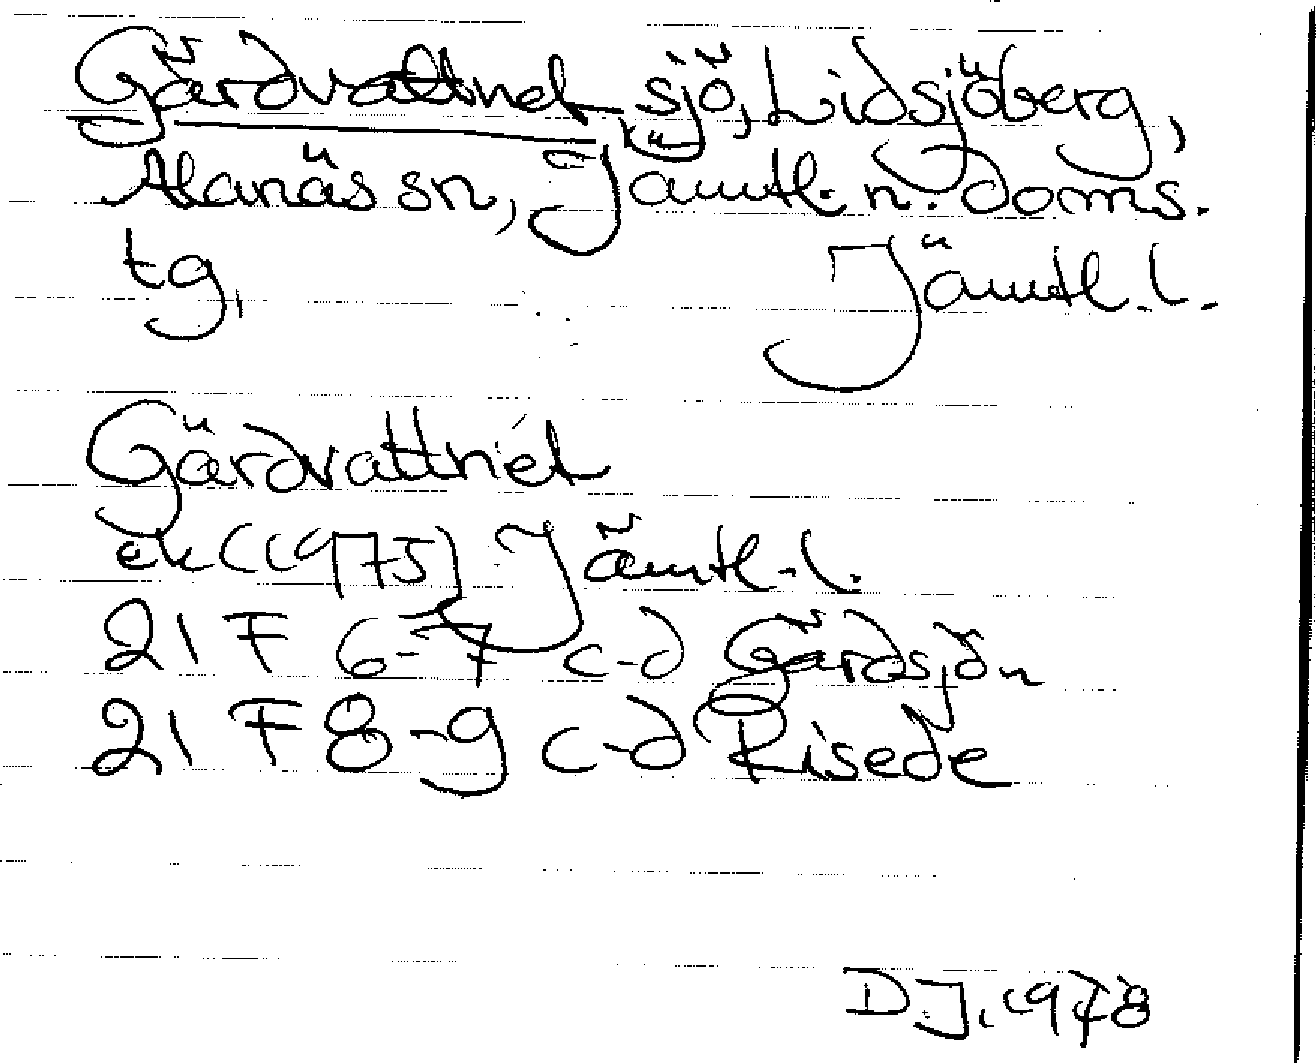 Gärdvattnet, sjö, Lidsjöberg,
Alanäs sn, Jämtl. n. doms.
tg,
Jämtl. l.
Gärdvattnet
ek (1975) Jämtl. l.
21 F 6-7 c-d Gärdsjön
21 F 8-9 c-d Risede
D.J. 1978